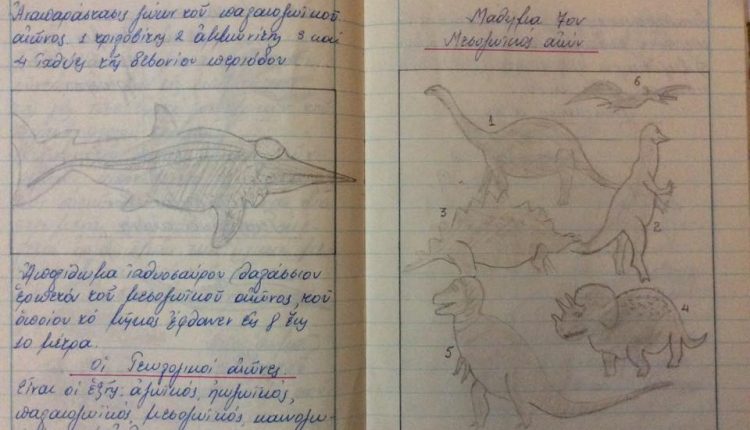 Ἀναπαράστασις ζώων τοῦ παλαιοζωϊκοῦ
αἰῶνος. 1 τριλοβίτης 2 ἀμμωνίτης 3 καί
4 ἰχθύς τῆς δεβονίου περιόδου
Ἀπολίθωμα ἰχθυοσαύρου θαλασσίου
ἑρπετοῦ τοῦ μεσοζωϊκοῦ αἰῶνος, τοῦ
ὁποίου τό μῆκος ἔφθανεν εἰς 8 ἕως
10 μέτρα.
Οἱ Γεωλογικοί αἰῶνες.
Εἶναι οἱ ἑξῆς: ἀζωϊκός, ἠωζωϊκός,
παλαιοζωϊκός, μεσοζωϊκός, καινοζω-
Μάθημα 7ον
Μεσοζωϊκός αἰών
6
1
2
3
4
5